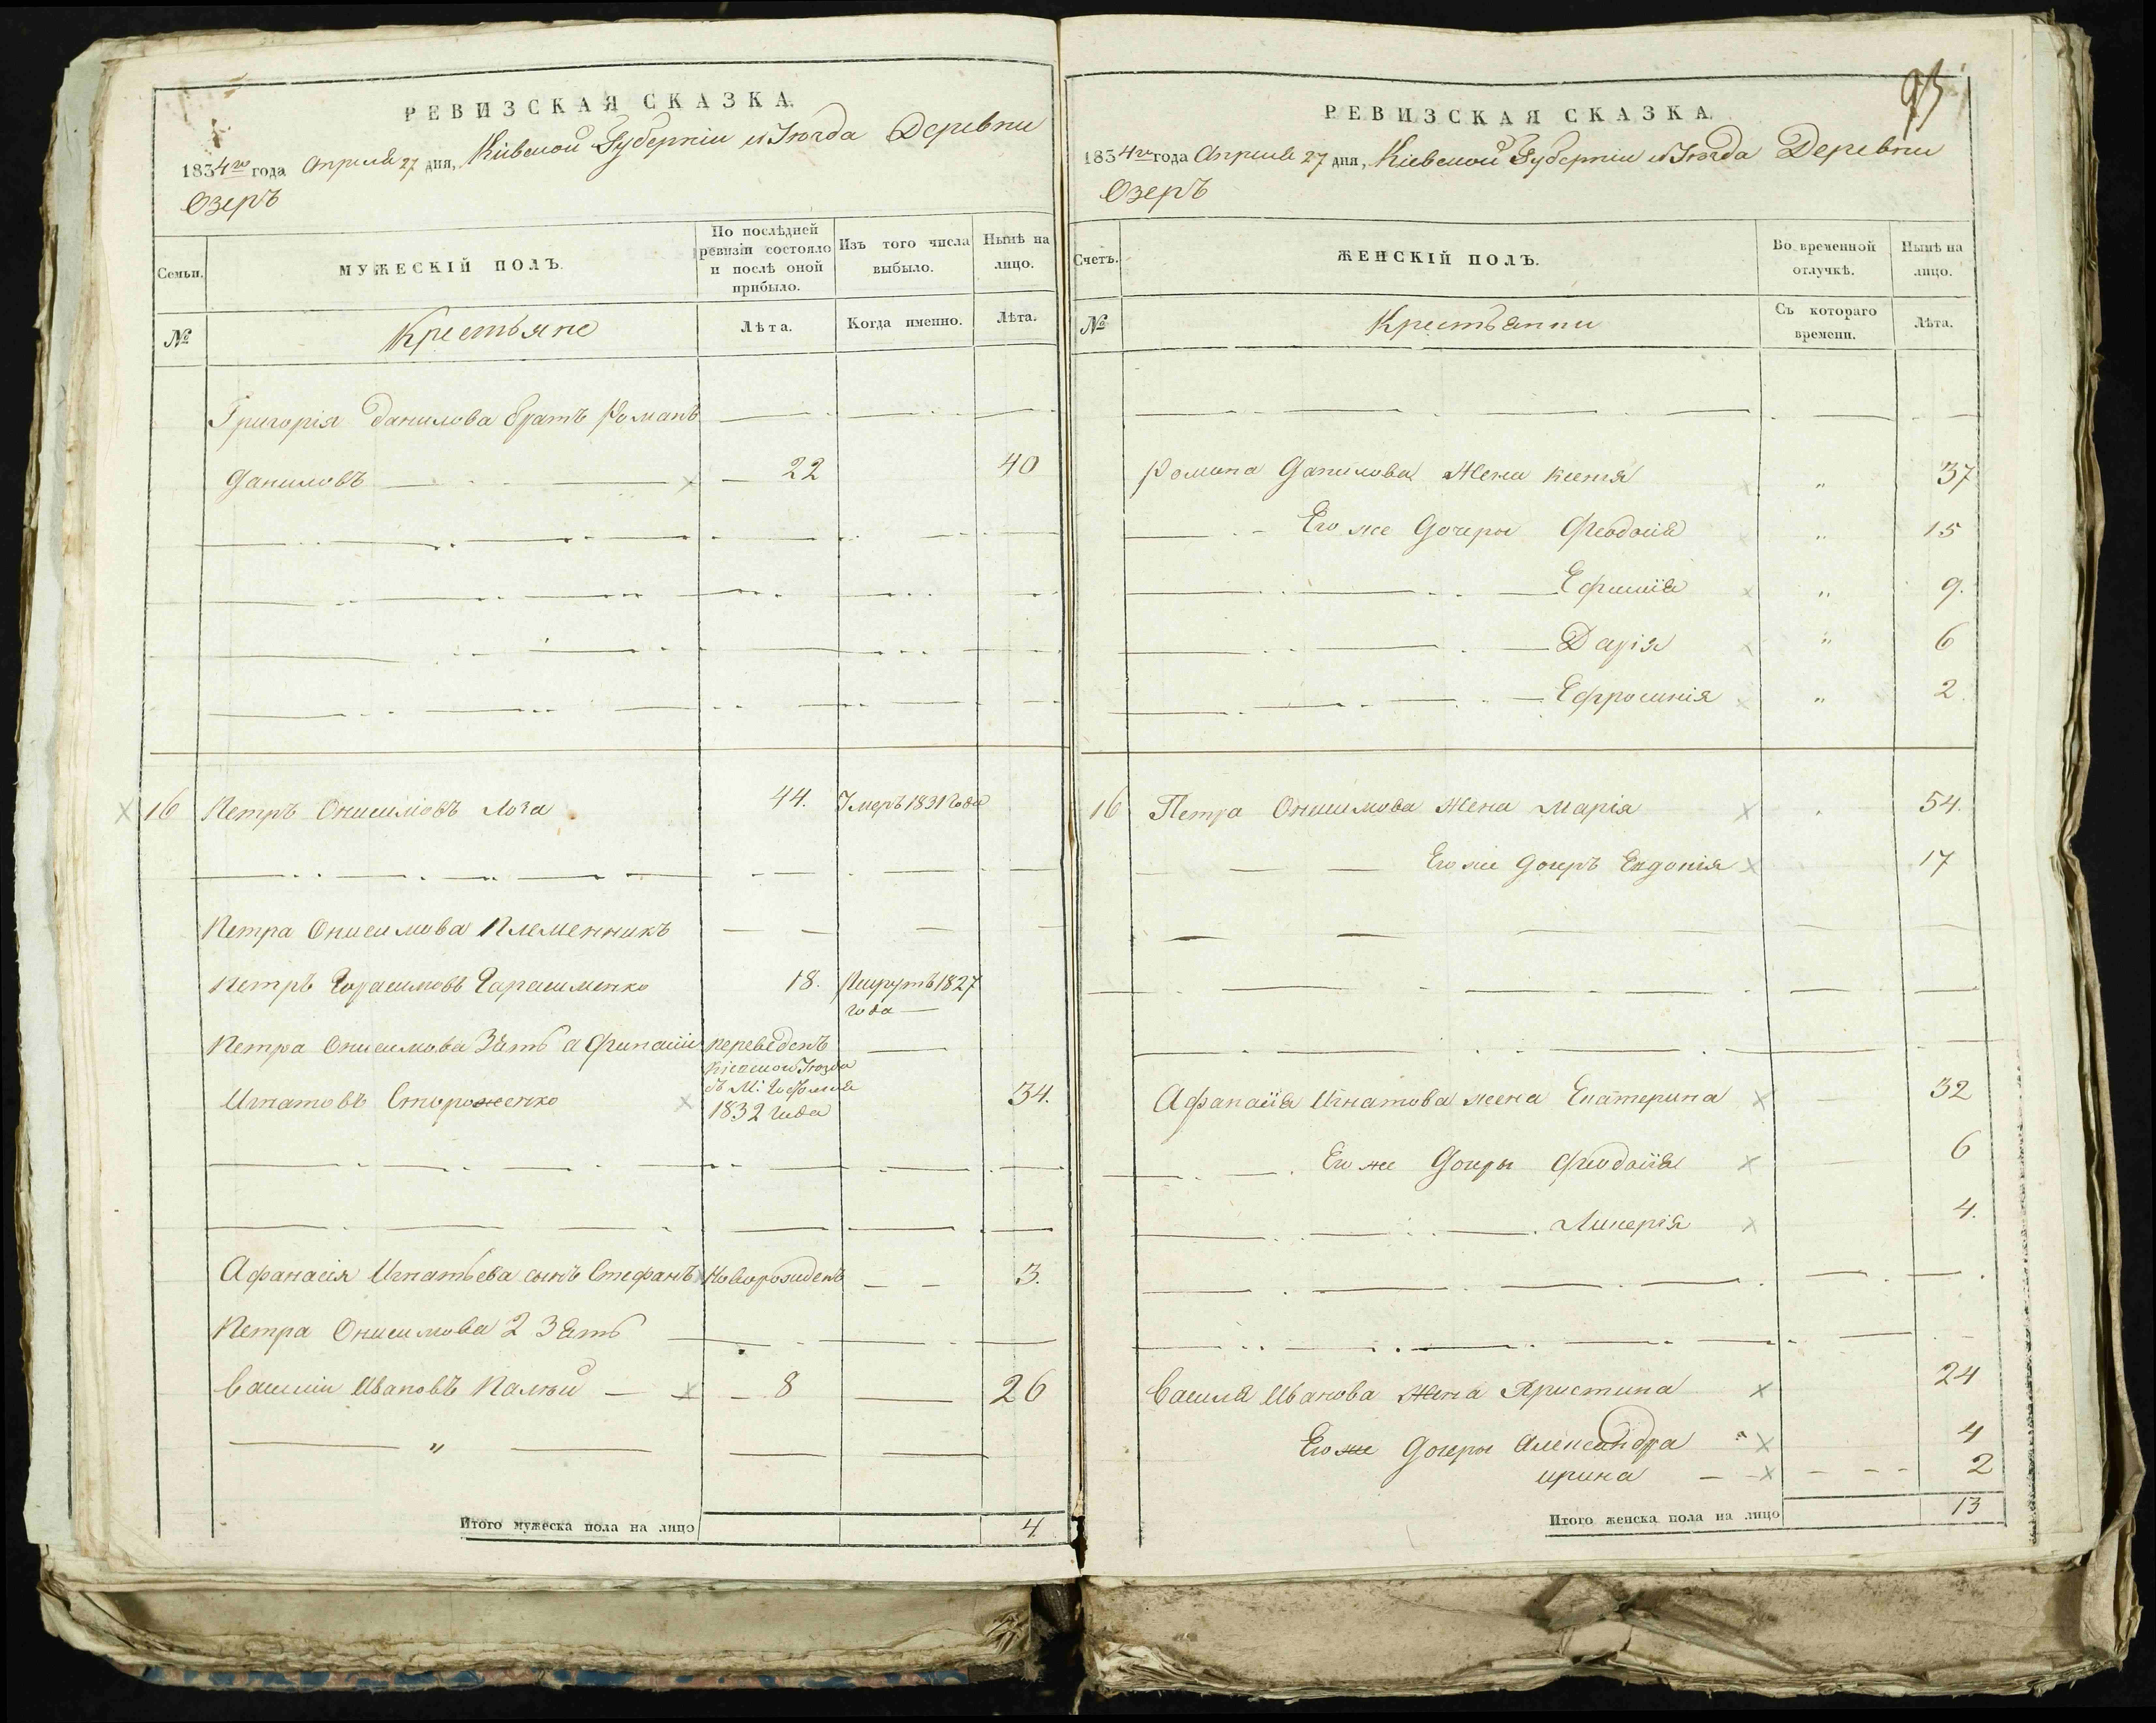 РЕВИЗСКАЯ СКАЗКА.
1834го года Апреля 27 дня, Кіевской Губерніи и Уезда Деревни
Озеръ
Семьи.
МУЖЕСКІЙ ПОЛЪ.
По послѣдней ревизіи состояло и послѣ оной прибыло.
Изъ того числа выбыло.
Нынѣ на лицо.
№
Крестьяне
Лѣта.
Когда именно.
Лѣта.
Григорія Данилова братъ Романъ
Даниловъ 22 40
16 Петръ Онисимовъ Лоза 44. Умеръ 1831 года
Петра Онисимова Племенникъ
Петръ Гарасимовъ Гарасименко 18. Рекрутъ 1827
года
Петра Онисимова Зять Афанасій переведенъ
Кіевского Уезда
съ М:
Игнатовъ Стороженко 1832 года 34.
Афанасія Игнатьева сынъ Стефанъ Новорожденъ 3.
Петра Онисимова 2 Зять
Василій Ивановъ Палій 8 26
Итого мужеска пола на лицо 4.
95
РЕВИЗСКАЯ СКАЗКА.
1834го года Апреля 27 дня, Кіевской Губерніи и Уезда Деревни
Озеръ
Счетъ.
ЖЕНСКІЙ ПОЛЪ.
Во временной отлучкѣ.
Нынѣ на лицо.
№
Крестьянки
Съ котораго времени.
Лѣта.
Романа Данилова Жена Ксенія " 37
Его же Дочеры Феодосія " 15
Ефимія " 9.
Дарія " 6
Ефросинія " 2.
16 Петра Онисимова Жена Марія 54.
Его же Дочеръ Евдокія 17
Афанасія Игнатова жена Екатерина 32
Его же Дочеры Феодосія 6
Ликерія 4.
Василя Иванова Жена Христина 24
Его же Дочеры Александра " 4
Ирина 2
Итого женска пола на лицо 13